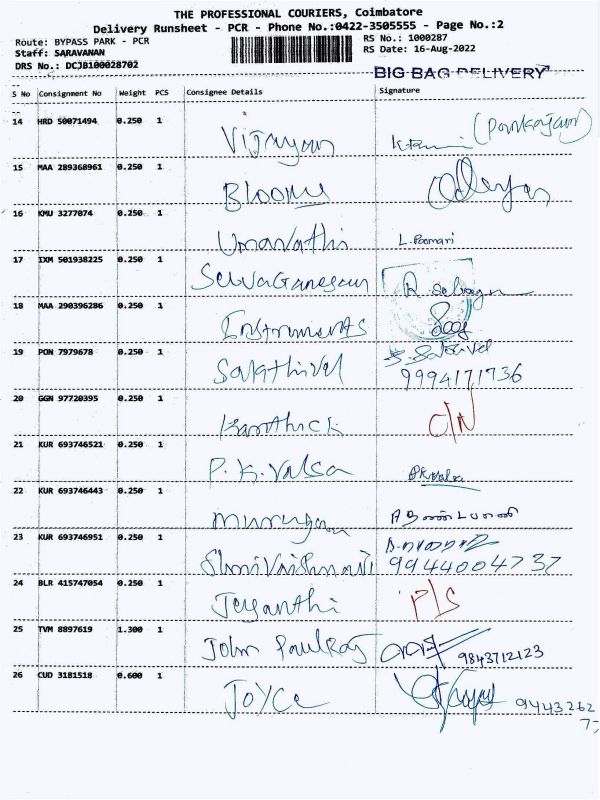 THE PROFESSIONAL COURIERS, Coimbatore
Delivery Runsheet - PCR - Phone No.:0422-3505555 - Page No.:2
Route: BYPASS PARK - PCR RS No.: 1000287
Staff: SARAVANAN RS Date: 16-Aug-2022
DRS No.: DCJB100028702
BIG BAG DELIVERY
S No Consignment No Weight PCS Consignee Details Signature
14 HRD 50071494 0.250 1 Vijayan
15 MAA 289368961 0.250 1 Blooms
16 KMU 3277074 0.250 1 Umavathi L. Poomari
17 IXM 501938225 0.250 1 SelvaGanesan
18 MAA 290396286 0.250 1 Instruments
19 PON 7979678 0.250 1 Sakthivel S. Sakthivel
9994171736
20 GGN 97720395 0.250 1 Karthick C/N
21 KUR 693746521 0.250 1 P.K.Valsa PKValsa
22 KUR 693746443 0.250 1 Murugan
23 KUR 693746951 0.250 1 Shri Vaishnavi 9944004737
24 BLR 415747054 0.250 1 Jeyanthi P/S
25 TVM 8897619 1.300 1 John Paulraj 9843712123
26 CUD 3181518 0.600 1 Joyce 9443262